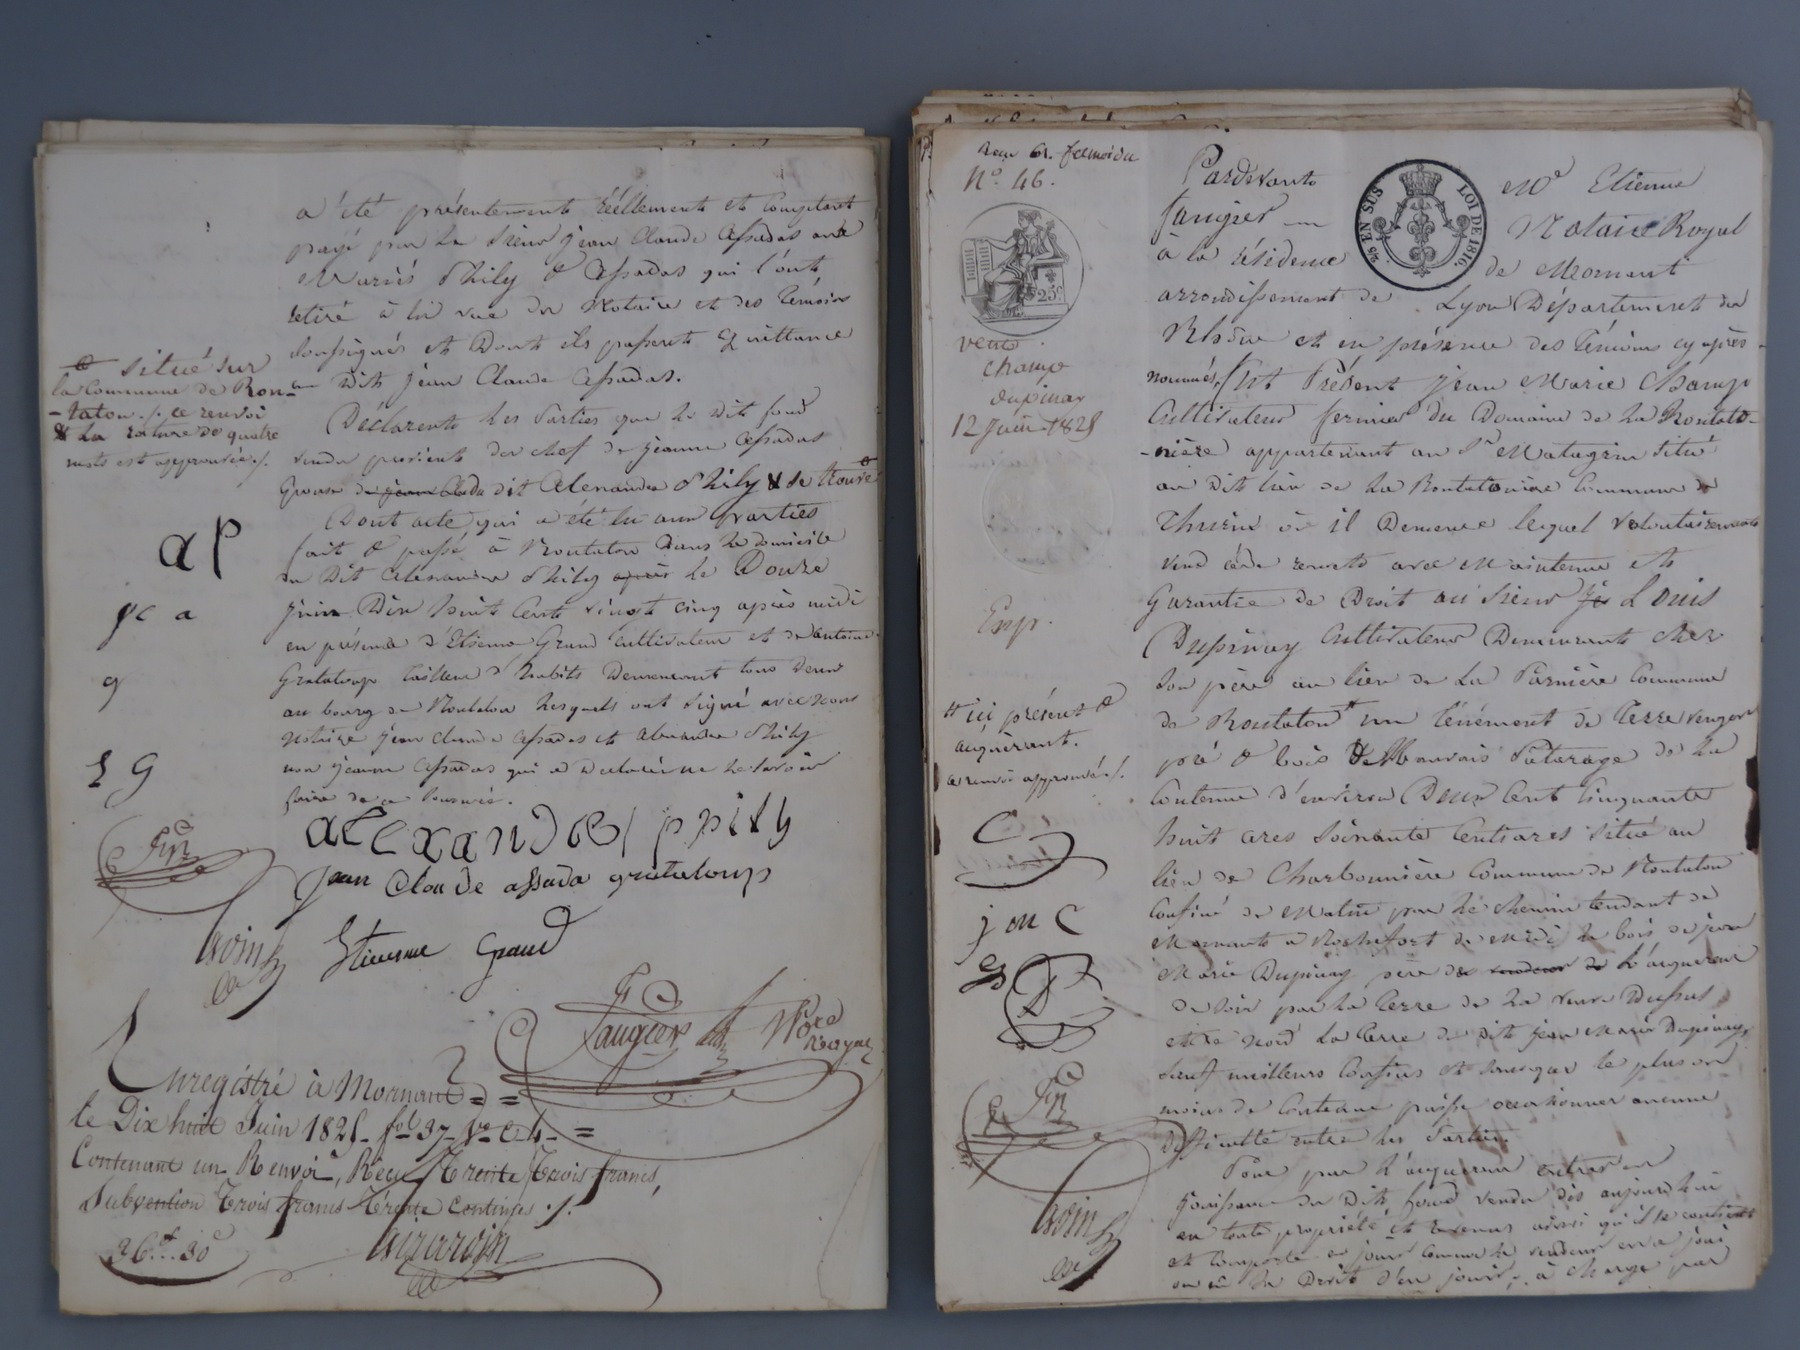 a été présentement réellement et comptant
payé par le sieur jean Claude assadas aux
Mariés Phily & assadas qui l'ont
retiré à la vue du Notaire et des témoins
soussignés et dont ils passent quittance
au dit jean Claude assadas.
Déclarent les Parties que le dit fond
vendu provient du chef de jeanne assadas
épouse du dit alexandre Phily & se trouve
& situé sur
la Commune de Ron-
-talon ./. ce renvoi
& la rature de quatre
mots est approuvée ./.
Dont acte, qui a été lu aux parties
fait & passé à Rontalon dans le domicile
du dit alexandre Phily après le Douze
juin Dix huit Cent vingt cinq après midi
en présence d'Etienne Grand cultivateur et de antoine
Grataloup tailleur d'habits Demeurant tous deux
au bourg de Rontalon lesquels ont signé avec nous
Notaire jean claude assadas et alexandre Phily
non jeanne assadas qui a déclaré ne le savoir
faire de ce sommée.
a P
jc a
g
E G
aLexandre phily
jean Claude assada grataloup
Etienne Grand
Faugier Nre Royal
Enregistré à Mornant
le Dix huit Juin 1825 fol 37 Vo C 4
Contenant un Renvoi, Reçu Trente Trois francs,
Subvention Trois francs Trente Centimes ./.
36f.. 30c
No. 46.
EN SUS LOI DE 1816.
25c
vente
champ
dupinay
12 juin 1825
Exp.
Pardevant Me Etienne
faugier Notaire Royal
à la résidence de Mornant
arrondissement de Lyon Département du
Rhône et en présence des témoins cy après
nommés, fut Présent jean Marie Champ
Cultivateur fermier du Domaine de la Rontalo-
-nière appartenant au Sr Matagrin situé
au dit lieu de la Rontalonière Commune de
Thurins où il Demeure lequel volontairement
vend cède remet avec Maintenue et
Garantie de Droit au sieur Louis
Dupinay Cultivateur Demeurant chez
son père au lieu de la Parnière Commune
de Rontalon # un tènement de terre verger
# ici présent &
acquérant.
ce renvoi approuvé ./.
pré & bois & Mauvais Pâturage de la
Contenue d'environ Deux Cent Cinquante
huit ares soixante Centiares situé au
lieu de Charbonnière Commune de Rontalon
Confiné de Matin par le chemin tendant de
Mornant a Rochefort de Midi le bois de jean
Marie Dupinay père de l'acquéreur
de soir par la terre de la veuve Dussus
et de nord la terre de dit jean Marie Dupinay,
sauf meilleurs Confins et sans que le plus ou
moins de Contenue puisse occasionner aucune
difficulté entre les Parties.
C
j m C
D
Pour par l'acquéreur entrer en
jouissance du dit fond vendu dès aujourd'hui
en toute propriété et revenus ainsi qu'il se contient
et comporte en jouir comme le vendeur en a joui
ou eu le Droit d'en jouir, à charge par